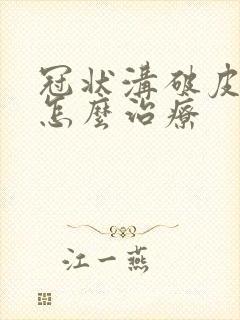 冠状溝破皮
怎麼治療
江一燕